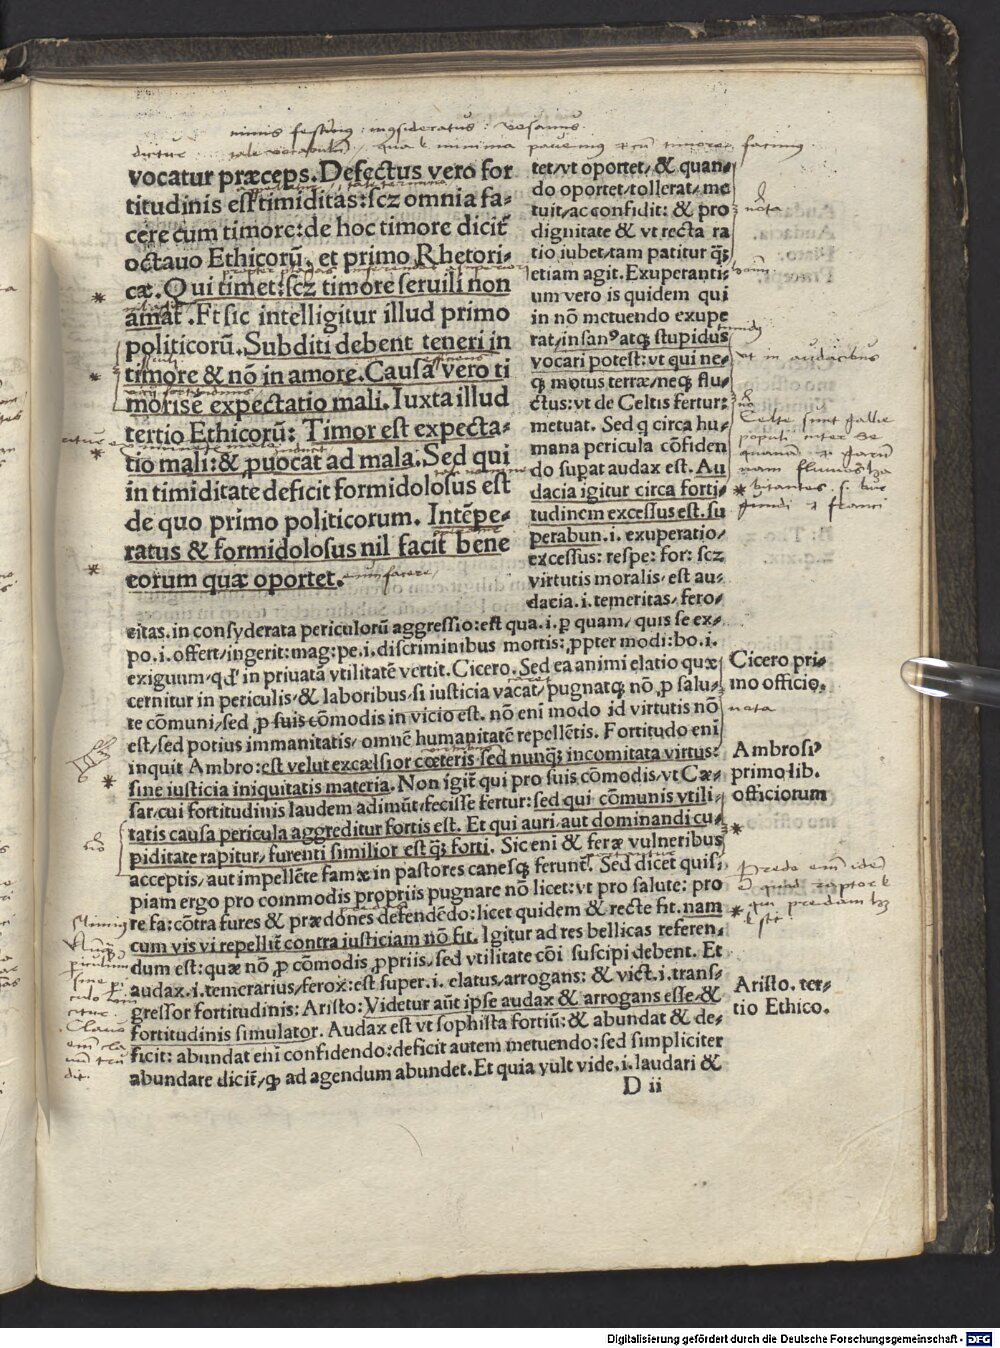 vocatur præceps. Defectus vero for
titudinis est timiditas: scz omnia fa-
cere cum timore: de hoc timore dicit̃
octauo Ethicorũ, et primo Rhetori-
cæ. Qui timet: scz timore seruili non
amat. Et sic intelligitur illud primo
politicorũ. Subditi debent teneri in
timore & nõ in amore. Causa vero ti
morise expectatio mali. Iuxta illud
tertio Ethicorũ: Timor est expecta-
tio mali: & ꝓuocat ad mala. Sed qui
in timiditate deficit formidolosus est
de quo primo politicorum. Intẽpe-
ratus & formidolosus nil facit bene
eorum quæ oportet.
tet, vt oportet, & quan-
do oportet, tollerat, me
tuit, ac confidit: & pro
dignitate & vt recta ra
tio iubet, tam patitur q̃;
etiam agit. Exuperanti-
um vero is quidem qui
in nõ metuendo exupe
rat, insanꝰ atq; stupidus
vocari potest: vt qui ne-
q; motus terræ, neq; flu-
ctus: vt de Celtis fertur:
metuat. Sed q circa hu-
mana pericula cõfiden
do supat audax est. Au
dacia igitur circa forti-
tudinem excessus est. su
perabun. i. exuperatio,
excessus: respe: for: scz
virtutis moralis, est au-
dacia. i. temeritas, fero-
citas. in consyderata periculorũ aggressio: est qua. i. ꝑ quam, quis se ex-
po. i. offert, ingerit: mag: pe. i. discriminibus mortis: ꝓpter modi: bo. i.
exiguum, qđ in priuatã vtilitatẽ vertit. Cicero. Sed ea animi elatio quæ
cernitur in periculis, & laboribus, si iusticia vacat, pugnatq; nõ ꝓ salu-
te cõmuni, sed ꝓ suis cõmodis in vicio est. nõ eni modo id virtutis nõ
est, sed potius immanitatis, omnẽ humanitatẽ repellẽtis. Fortitudo eni
inquit Ambro: est velut excælsior cœteris sed nunq̃; incomitata virtus:
sine iusticia iniquitatis materia. Non igit̃ qui pro suis cõmodis, vt Cæ-
sar, cui fortitudinis laudem adimũt, fecisse fertur: sed qui cõmunis vtili-
tatis causa pericula aggreditur fortis est. Et qui auri, aut dominandi cu-
piditate rapitur, furenti similior est q̃; forti. Sic eni & feræ vulneribus
acceptis, aut impellẽte famæ in pastores canesq; ferunt̃. Sed dicet quis:
piam ergo pro commodis propriis pugnare nõ licet: vt pro salute: pro
re fa: cõtra fures & prædones defendẽdo: licet quidem & recte fit. nam
cum vis vi repellit̃ contra iusticiam nõ fit. Igitur ad res bellicas referen-
dum est: quæ nõ ꝓ cõmodis ꝓpriis, sed vtilitate cõi suscipi debent. Et
audax. i. temerarius, ferox: est super. i. elatus, arrogans: & vict. i. trans-
gressor fortitudinis: Aristo: Videtur aũt ipse audax & arrogans esse, &
fortitudinis simulator. Audax est vt sophista fortiũ: & abundat & de-
ficit: abundat eni confidendo: deficit autem metuendo: sed simpliciter
abundare dicit̃, ꝙ ad agendum abundet. Et quia vult vide. i. laudari &
D ii
nota
vt in audacibus
Celte sunt gallie
populi inter se
Cicero pri-
mo officio.
nota
Ambrosiꝰ
primo lib.
officiorum
Aristo. ter-
tio Ethico.
Digitalisierung gefördert durch die Deutsche Forschungsgemeinschaft - DFG